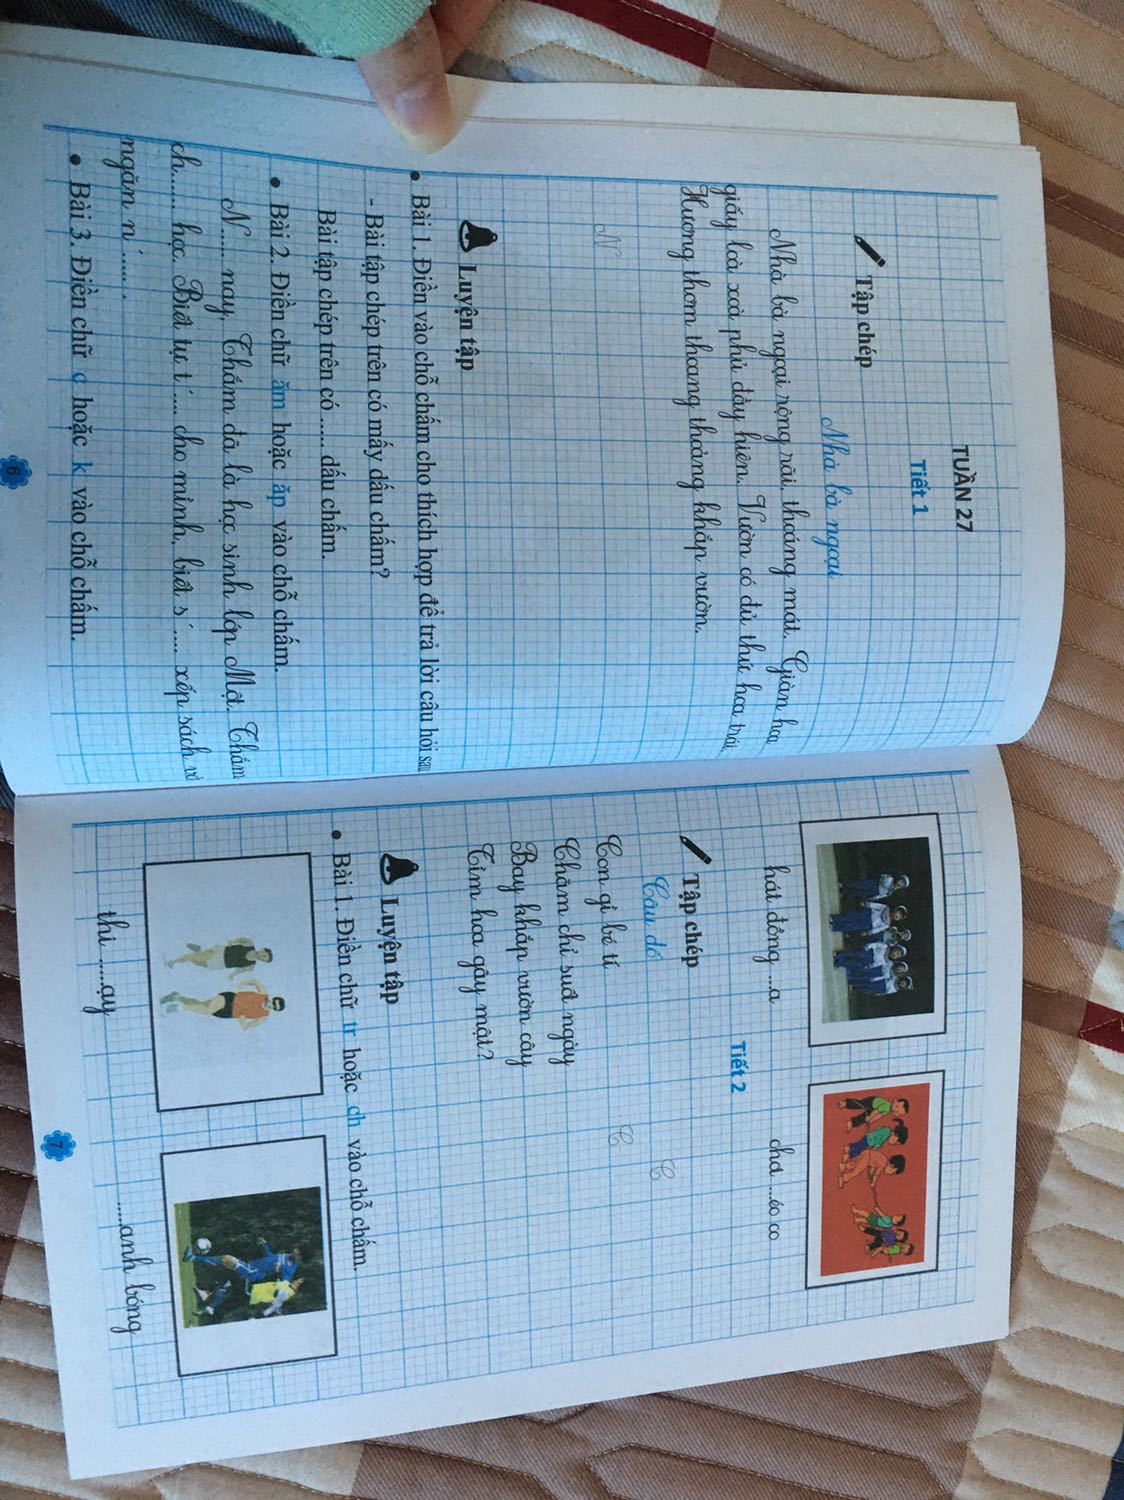 TUẦN 27
Tiết 1
Tập chép
Nhà bà ngoại
Nhà bà ngoại rộng rãi, thoáng mát. Giàn hoa
giấy loà xoà phủ đầy hiên. Vườn có đủ thứ hoa trái.
Hương thơm thoang thoảng khắp vườn.
N
Luyện tập
• Bài 1. Điền vào chỗ chấm cho thích hợp để trả lời câu hỏi sau
- Bài tập chép trên có mấy dấu chấm?
Bài tập chép trên có ..... dấu chấm.
• Bài 2. Điền chữ ăm hoặc ăp vào chỗ chấm.
N..... nay, Thắm đã là học sinh lớp Một. Thắm
ch..... học. Biết tự t´.... cho mình, biết s´.... xếp sách
ngăn n´......
• Bài 3. Điền chữ c hoặc k vào chỗ chấm.
6
hát đồng ...a
chơi ...éo co
Tiết 2
Tập chép
Câu đố
C
Con gì bé tí
C
Chăm chỉ suốt ngày
Bay khắp vườn cây
Tìm hoa gây mật?
Luyện tập
• Bài 1. Điền chữ tr hoặc ch vào chỗ chấm.
thi .....ạy
.....anh bóng
7